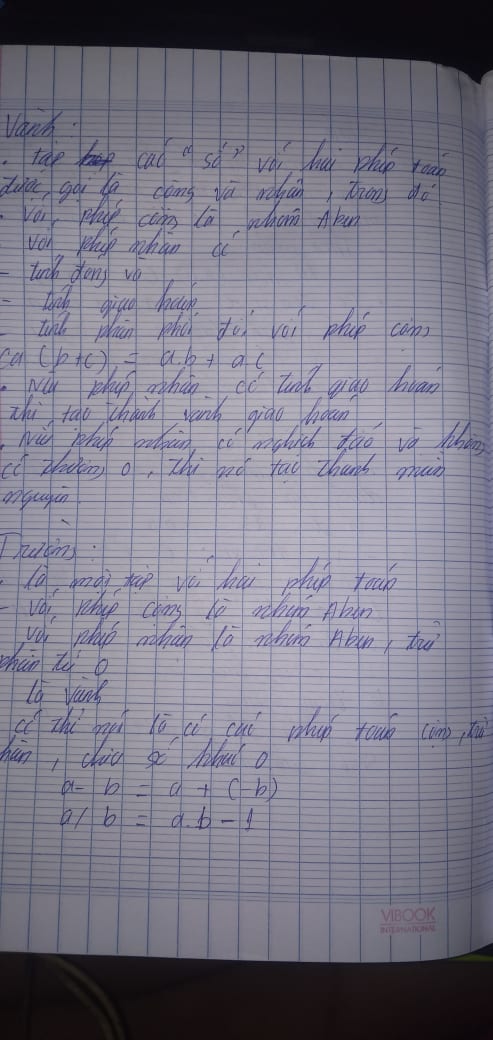 Vành :
. tập các "số" với hai phép toán
được gọi là cộng và nhân , trong đó
. Với phép cộng là nhóm Aben
- với phép nhân có
- tính đóng và
- tính giao hoán
- tính phân phối đối với phép cộng
a (b+c) = a.b + a.c
. Nếu phép nhân có tính giao hoán
thì tạo thành vành giao hoán
. Nếu phép nhân có nghịch đảo và không
có thương 0 , thì nó tạo thành miền
nguyên
Trường :
. là một tập với hai phép toán
- với phép cộng là nhóm Aben
với phép nhân là nhóm Aben , trừ
phần tử 0
là vành
có thể nói là có các phép toán cộng , trừ
nhân , chia số khác 0
a - b = a + (-b)
a / b = a.b - 1
VIBOOK
INTERNATIONAL